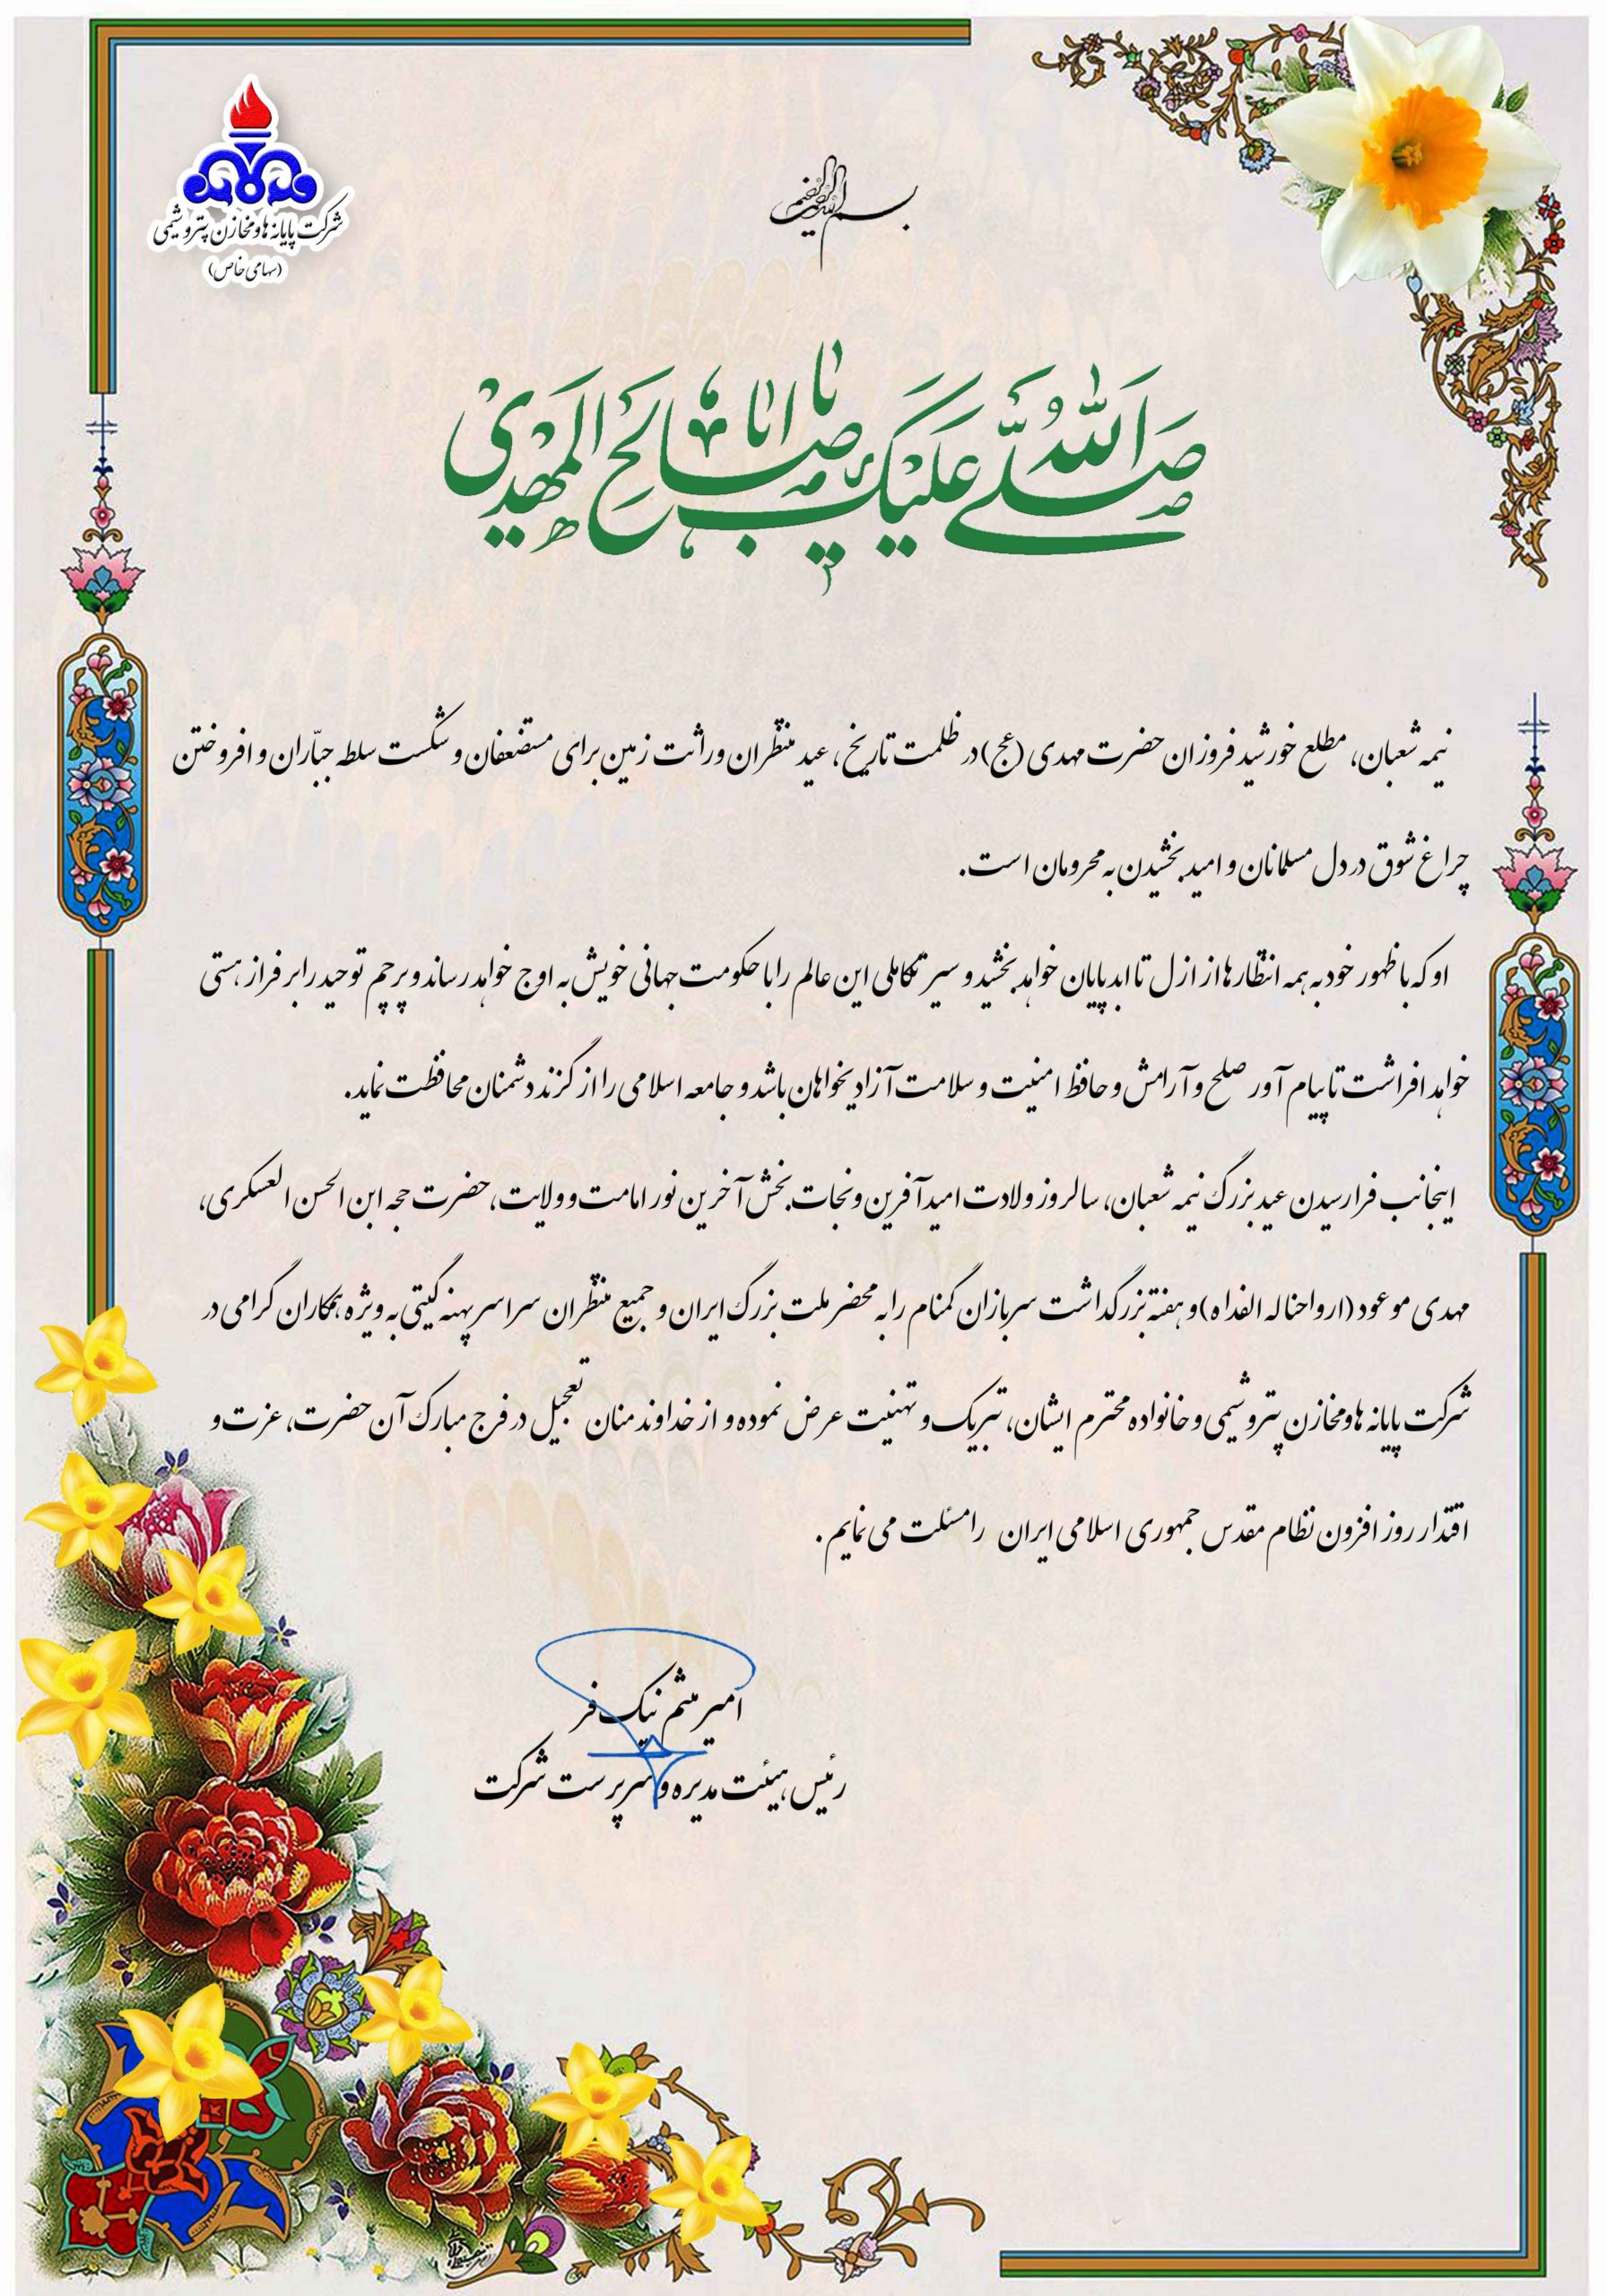 شرکت پایانه ها و مخازن پتروشیمی
(سهامی خاص)
بسم الله الرحمن الرحیم
صَلَّی اللهُ عَلَیْکَ یا اباصالِحَ المَهدی
نیمه شعبان، مطلع خورشید فروزان حضرت مهدی (عج) در ظلمت تاریخ، عید منتظران وراثت زمین برای مستضعفان و شکست سلطه جبّاران و افروختن
چراغ شوق در دل مسلمانان و امید بخشیدن به محرومان است.
او که با ظهور خود به همه انتظارها از ازل تا ابد پایان خواهد بخشید و سیر تکاملی این عالم را با حکومت جهانی خویش به اوج خواهد رساند و پرچم توحید را بر فراز هستی
خواهد افراشت تا پیام آور صلح و آرامش و حافظ امنیت و سلامت آزادیخواهان باشد و جامعه اسلامی را از گزند دشمنان محافظت نماید.
اینجانب فرارسیدن عید بزرگ نیمه شعبان، سالروز ولادت امید آفرین و نجات بخش آخرین نور امامت و ولایت، حضرت حجه ابن الحسن العسکری،
مهدی موعود (ارواحنا له الفداه) و هفته بزرگداشت سربازان گمنام را به محضر ملت بزرگ ایران و جمیع منتظران سراسر پهنه گیتی به ویژه همکاران گرامی در
شرکت پایانه ها و مخازن پتروشیمی و خانواده محترم ایشان، تبریک و تهنیت عرض نموده و از خداوند منان تعجیل در فرج مبارک آن حضرت، عزت و
اقتدار روز افزون نظام مقدس جمهوری اسلامی ایران را مسئلت می نمایم.
امیر میثم نیک فر
رئیس هیئت مدیره و سرپرست شرکت